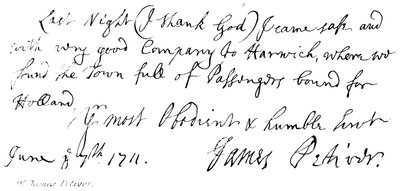 Last Night (I thank God) I came safe and
with very good Company to Harwich, where we
fund the Town full of Passengers bound for
Holland
Yr most Obedient & humble Servt
June ye 7th. 1711. James Petiver.
Mr James Petiver.